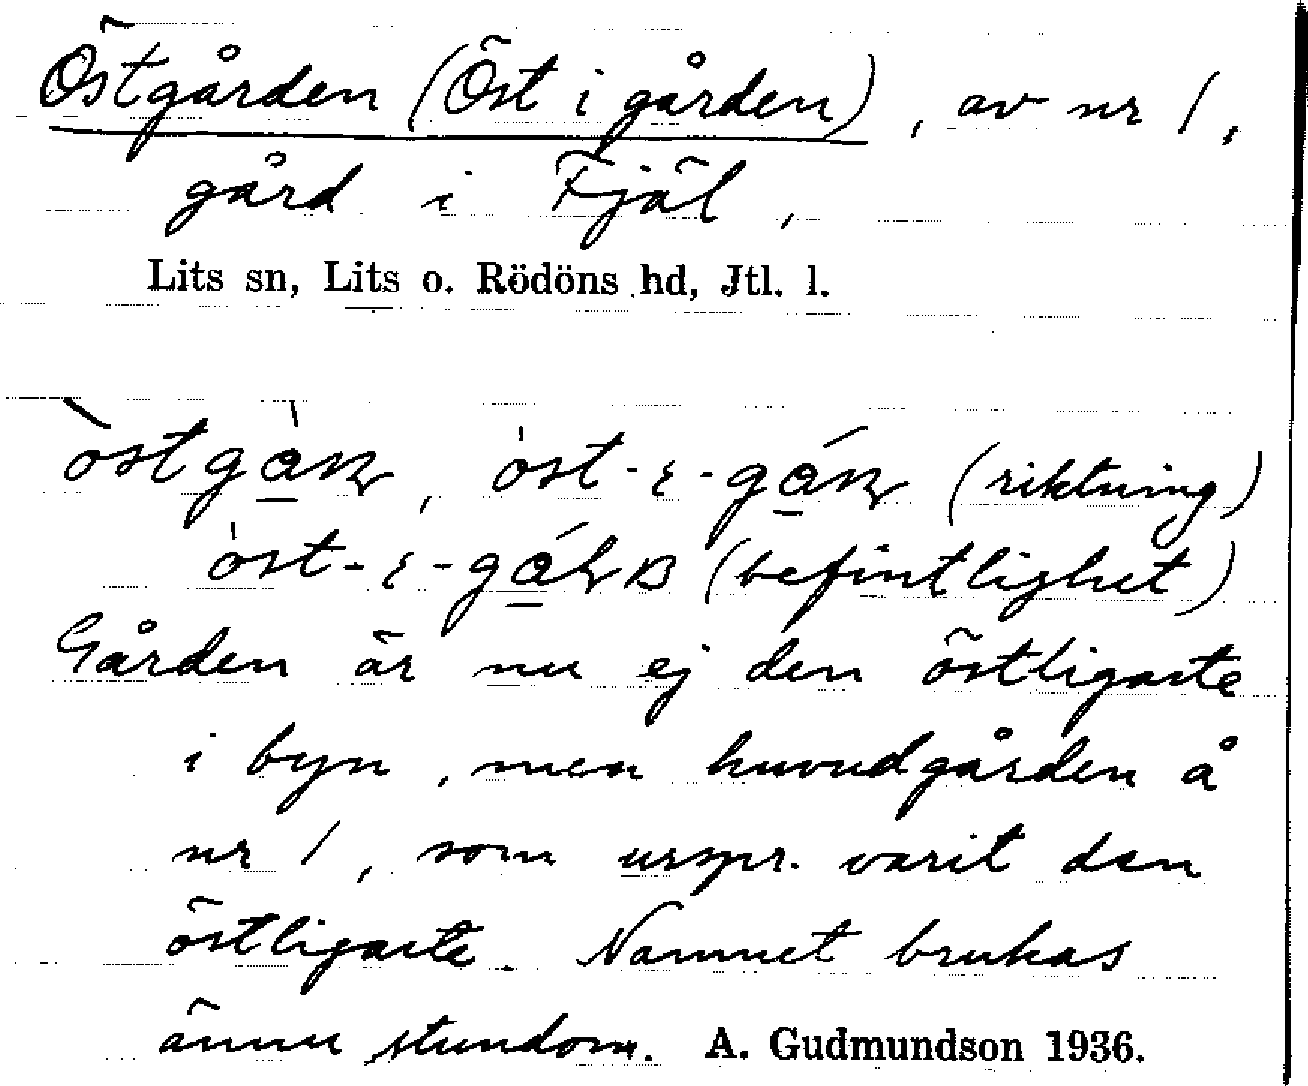 Östgården (Öst i gården), av nr 1,
gård i Fjäl,
Lits sn, Lits o. Rödöns hd, Jtl. l.
(riktning)
(befintlighet)
Gården är nu ej den östligaste
i byn, men huvudgården å
nr 1, som urspr. varit den
östligaste. Namnet brukas
ännu stundom. A. Gudmundson 1936.